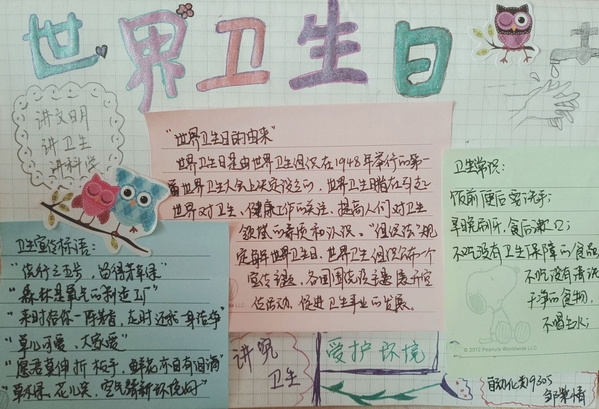 世界卫生日
讲文明
讲卫生
讲科学
"世界卫生日的由来"
世界卫生日是由世界卫生组织在1948年举行的第一
届世界卫生大会上决定设立的,世界卫生日旨在引起
世界对卫生、健康工作的关注,提高人们对卫生
领域的素质和认识。"组织法"规
定每年世界卫生日,世界卫生组织公布一个
宣传主题,各国围绕主题展开宣
传活动,促进卫生事业的发展。
卫生常识:
饭前便后要洗手;
早晚刷牙,食后漱口;
不吃没有卫生保障的食品
不吃没有清洗
干净的食物,
不喝生水;
© 2012 Peanuts Worldwide LLC
卫生宣传标语:
"森林是氧气的制造工厂"
"来时给你一阵芳香,走时还我一身洁净"
"草儿可爱,大家爱"
"愿君莫伸折枝手,鲜花亦自有泪滴"
"草绿绿,花儿笑,空气清新环境好"
讲究
卫生
爱护环境
自动化类19305